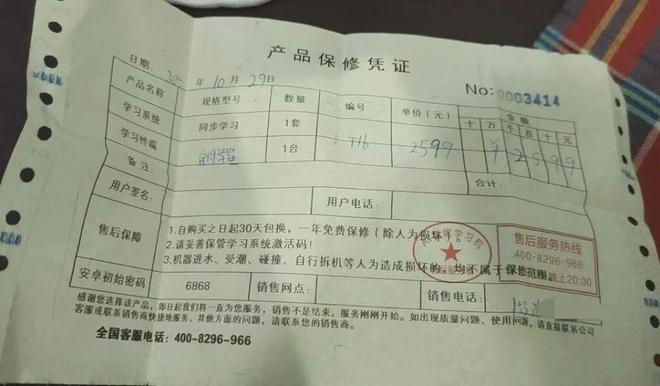 产品保修凭证
日期 年 10 月 29 日
No: 0003414
产品名称 规格型号 数量 编号 单价(元) 金额
十 万 千 百 十 元
学习系统 同步学习 1套
学习终端 1台 T16 2599 ¥ 2 5 9 9
备注: 合计:
用户签名: 用户电话:
售后保障
1.自购买之日起30天包换,一年免费保修(除人为损坏)。
2.请妥善保管学习系统激活码!
3.机器进水、受潮、碰撞、自行拆机等人为造成损坏的,均不属于保修范围。
学习机
售后服务热线
400-8296-966
晚上20:00
安卓初始密码 6868 销售网点: 销售电话:
感谢您选择该产品,即日起我们将一直为您服务,销售不是结束,服务刚刚开始。如出现质量问题、使用问题,请直接联系公司
客服或联系销售商快捷地服务,其他方面的问题,请联系您的销售商。
全国客服电话:400-8296-966